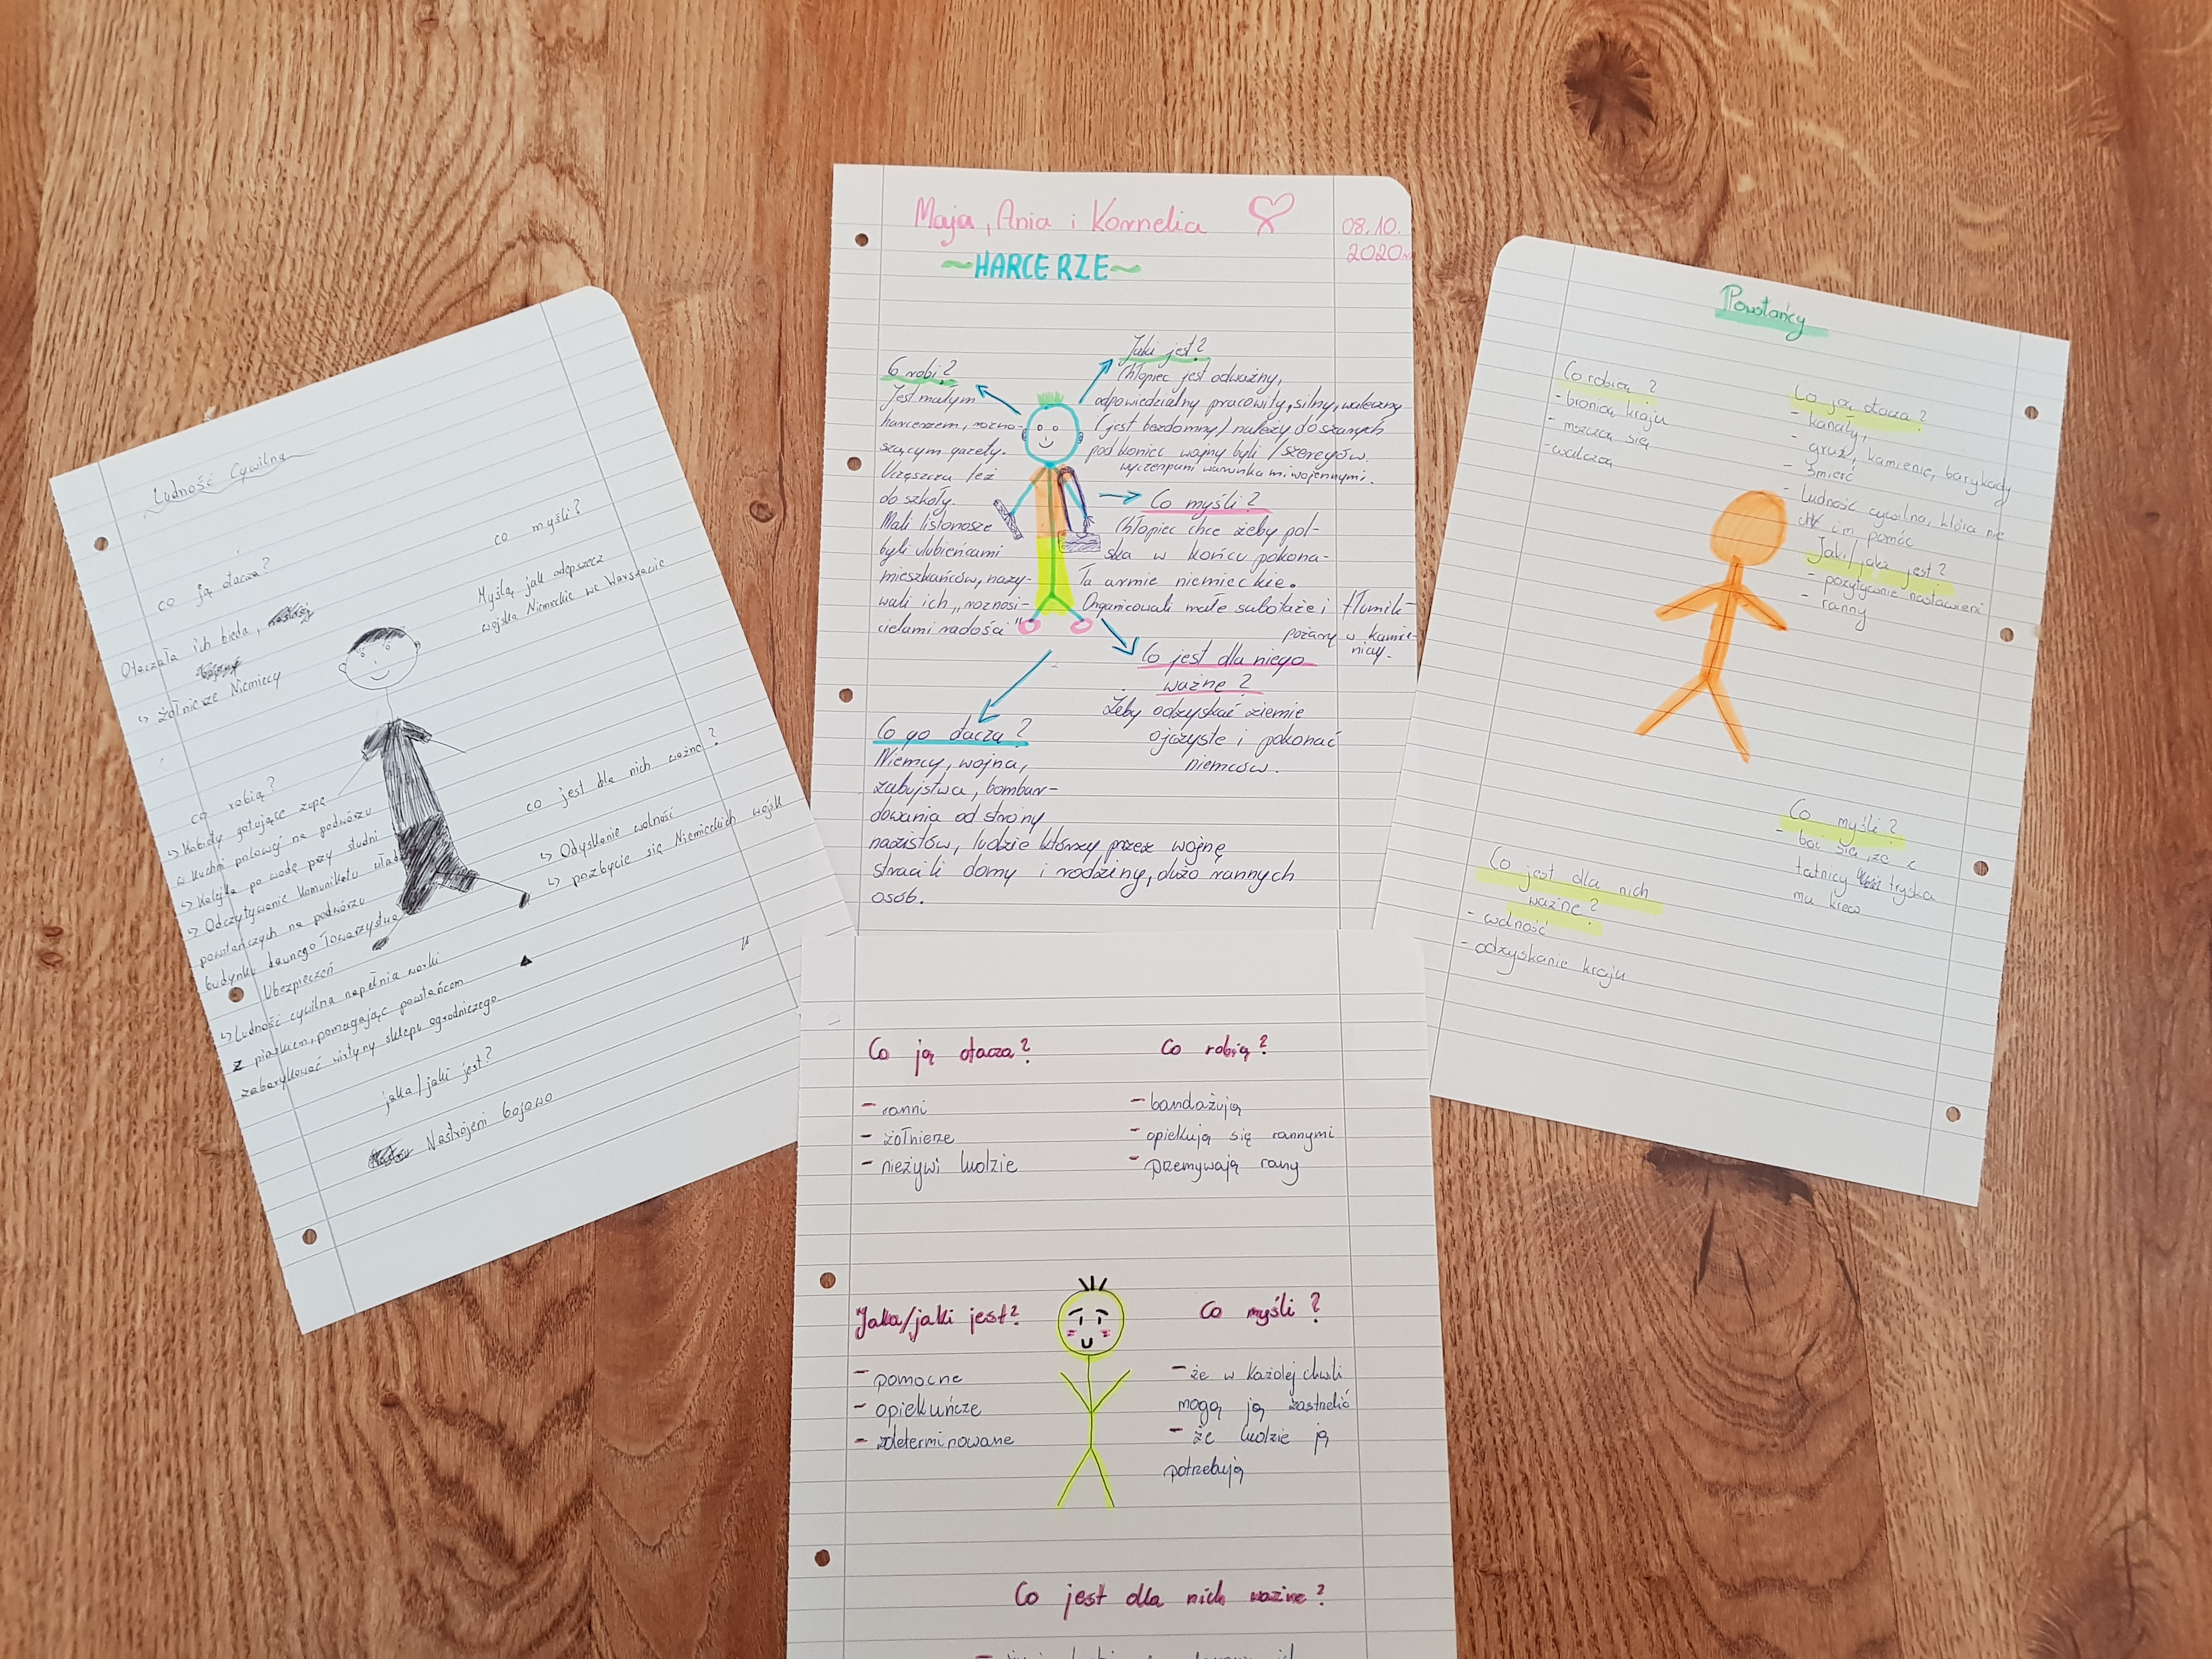 Ludność Cywilna
co ją otacza?
Otaczała ich bieda,
↳ żołnierze Niemiecy
co myśli?
Myślą jak odepszecz
wojska Niemieckie we Warszawie
co robią?
↳ Kobiety gotujące zupę
w kuchni polowej na podwórzu
↳ Kolejka po wodę przy studni
↳ Odczytywanie komunikatu władz
powstańczych na podwórzu
budynku dawnego Towarzystwa
Ubezpieczeń
↳ Ludność cywilna napełnia worki
z piaskiem, pomagając powstańcom
zabarykować witryny sklepu ogrodniczego
co jest dla nich ważne?
↳ Odyskanie wolność
↳ pozbycie się Niemieckich wojsk
jaka/jaki jest?
Nastrojeni bojowo
Maja, Ania i Kornelia
08.10.
2020
~HARCERZE~
Co robi?
Jest małym
harcerzem, rozno-
szącym gazety.
Uczęszcza też
do szkoły.
Mali listonosze
byli ulubieńcami
mieszkańców, nazy-
wali ich „roznosi-
cielami radości"
Jaki jest?
Chłopiec jest odważny,
odpowiedzialny pracowity, silny, waleczny
(jest bezdomny/należy do szarych
pod koniec wojny byli /szeregów.
wyczerpani warunkami wojennymi.
Co myśli?
Chłopiec chce żeby pol-
ska w końcu pokona-
ła armie niemieckie.
Organizowali małe sabotaże i tłumili
pożary w kamie-
nicy.
Co jest dla niego
ważne?
Żeby odzyskać ziemie
ojczyste i pokonać
niemców.
Co go otacza?
Niemcy, wojna,
zabujstwa, bombar-
dowania od strony
nazistów, ludzie którzy przez wojnę
stracili domy i rodziny, dużo rannych
osób.
Powstańcy
Co robią?
- bronią kraju
- mszczą się
- walczą
Co ją otacza?
- kanały,
- gruz, kamienie, barykady
- śmierć
- ludność cywilna, która nie
im pomóc
Jaki/jaka jest?
- pozytywnie nastawieni
- ranny
Co myśli?
- boi się, że z
tętnicy tryska
mu krew
Co jest dla nich
ważne?
- wolność
- odzyskanie kraju
Co ją otacza?
- ranni
- żołnierze
- nieżywi ludzie
Co robią?
- bandażują
- opiekują się rannymi
- przemywają rany
Jaka/jaki jest?
- pomocne
- opiekuńcze
- zdeterminowane
Co myśli?
- że w każdej chwili
mogą ją zastrzelić
- że ludzie ją
potrzebują
Co jest dla nich ważne?